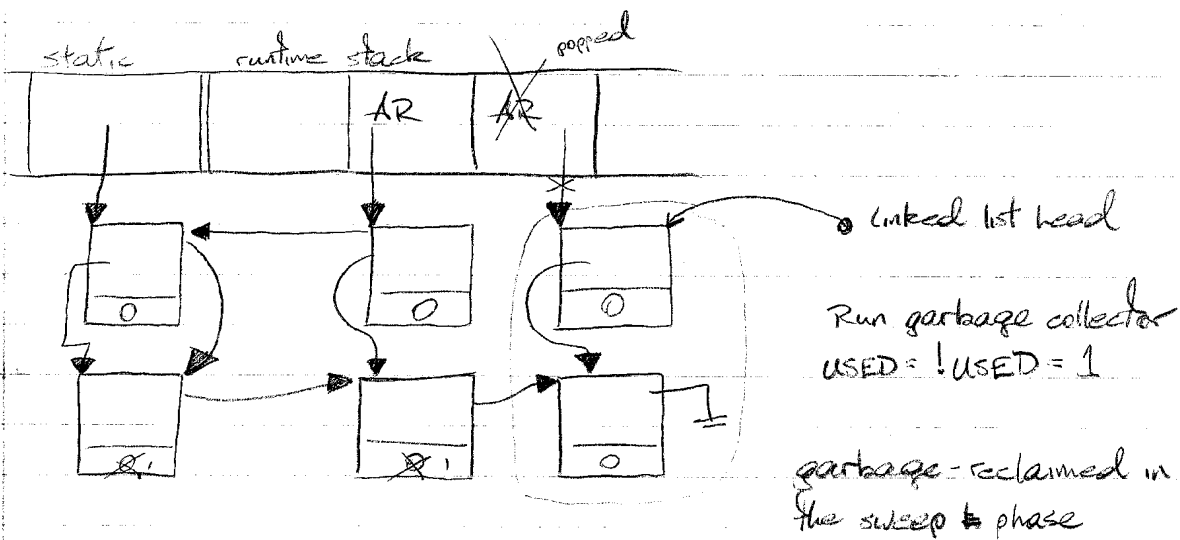 static runtime stack popped
AR AR
Linked list head
0 0 0
Run garbage collector
USED = !USED = 1
0 1 0 1 0
garbage - reclaimed in
the sweep phase